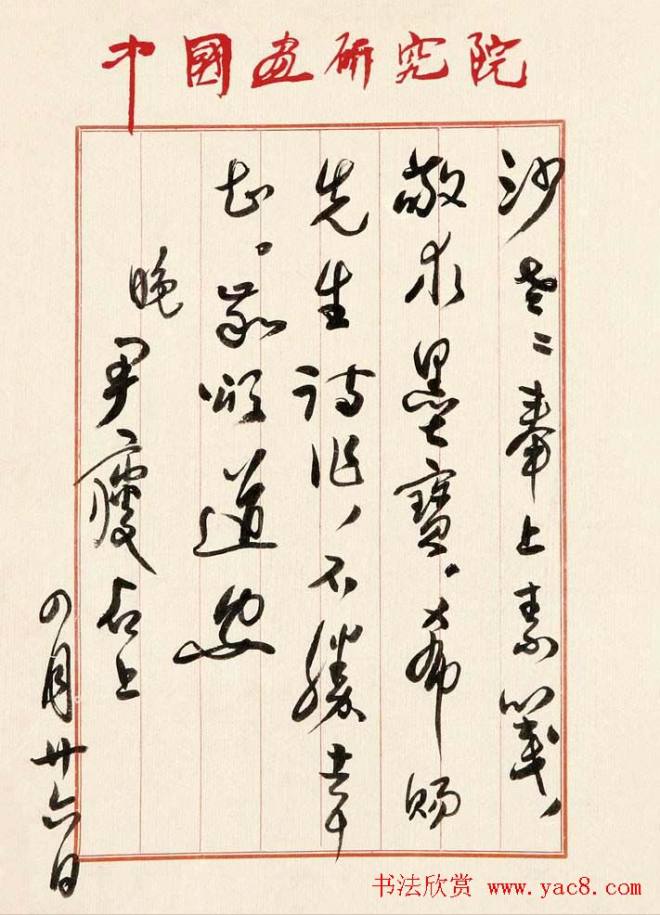 中國畫研究院
沙老：奉上素笺，
敬求墨寶。希賜
先生詩作，不勝幸
甚。敬頌道安
晚
尹瘦石上
四月廿六日
书法欣赏 www.yac8.com